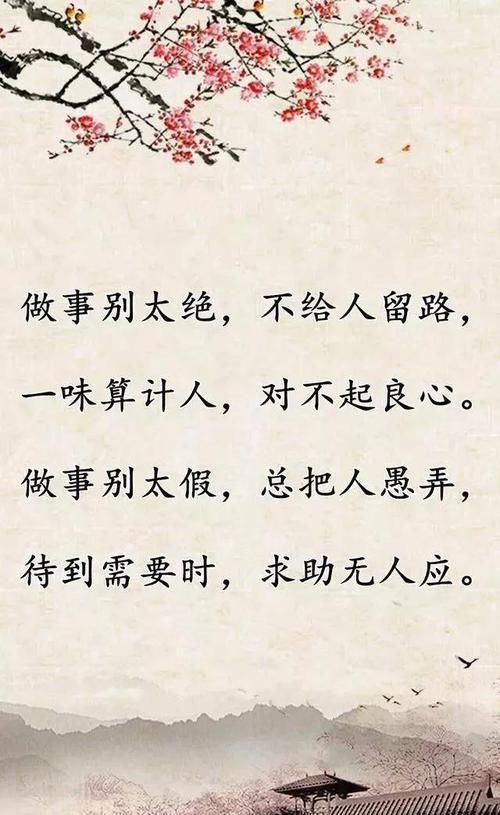 做事别太绝，不给人留路，
一味算计人，对不起良心。
做事别太假，总把人愚弄，
待到需要时，求助无人应。